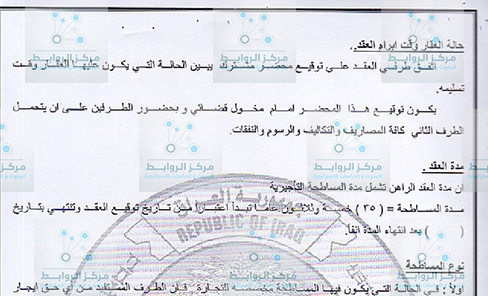 حالة العقار وقت ابرام العقد.
اتفق طرفي العقد على توقيع محضر مشترك يبين الحالة التي يكون عليها العقار وقت
تسليمه.
يكون توقيع هذا المحضر امام مخول قضائي و بحضور الطرفين على ان يتحمل
الطرف الثاني كافة المصاريف والتكاليف والرسوم والنفقات.
مدة العقد.
ان مدة العقد الراهن تشمل مدة المساطحة التأجيرية
مدة المساطحة = ( ٣٥ ) خمسة وثلاثون عاما تبدأ اعتبارا من تاريخ توقيع العقد وتنتهي بتاريخ
( ) بعد انتهاء المدة انفا.
نوع المساطحة
اولا : في الحالة التي يكون فيها المساطحة مخصصه للتجارة ، فان الطرف المستفيد من أي حق ايجار
جمهورية العراق
REPUBLIC OF IRAQ
مركز الروابط